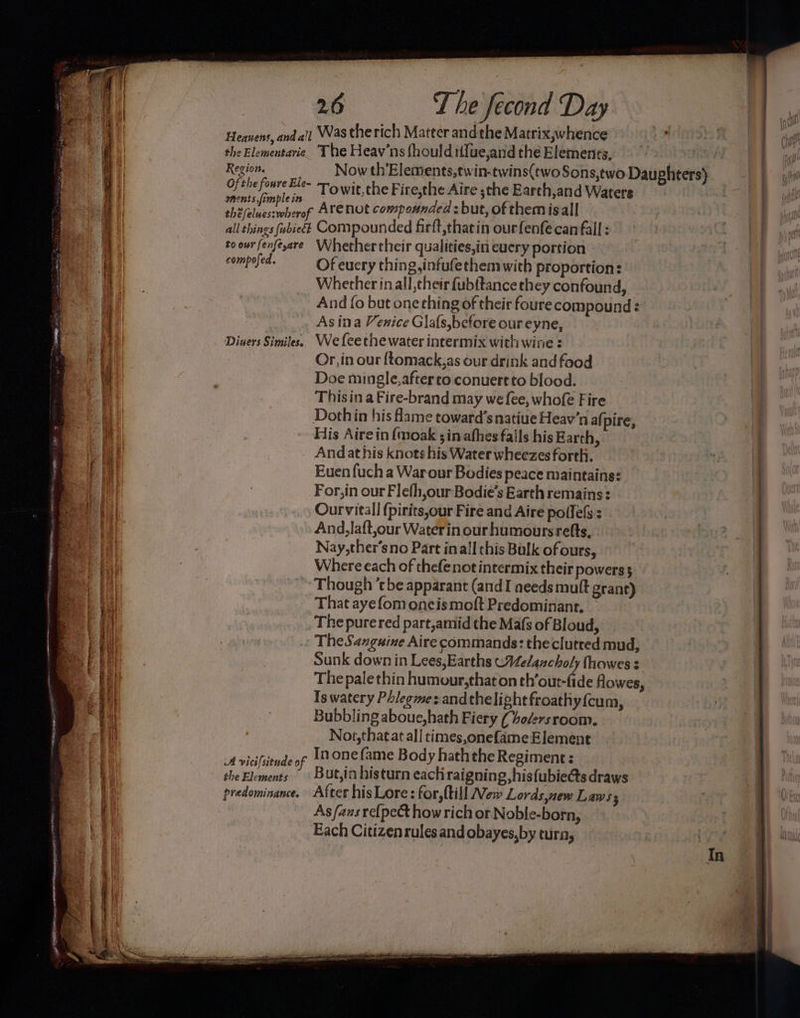 26 The ſecond Day
Heauens, and all
the Elementarie
Region.
Of the foure Ele-
ments, ſimple in
thēſelues: wherof
all things ſubiect
to our ſenſe, are
compoſed.
Was the rich Matter and the Matrix, whence
The Heav'ns ſhould iſſue, and the Elements.
Now th'Elements, twin-twins (two Sons, two Daughters)
To wit, the Fire, the Aire, the Earth, and Waters
Are not compounded: but, of them is all
Compounded firſt, that in our ſenſe can fall:
Whether their qualities, in euery portion
Of euery thing, infuſe them with proportion:
Whether in all, their ſubſtance they confound,
And ſo but one thing of their foure compound:
As in a Venice Glaſs, before our eyne,
Diuers Similes.
We ſee the water intermix with wine:
Or, in our ſtomack, as our drink and food
Doe mingle, after to conuert to blood.
This in a Fire-brand may we ſee, whoſe Fire
Doth in his flame toward's natiue Heav'n aſpire,
His Aire in ſmoak; in aſhes falls his Earth,
And at his knots his Water wheezes forth.
Euen ſuch a War our Bodies peace maintains:
For, in our Fleſh, our Bodie's Earth remains:
Our vitall ſpirits, our Fire and Aire poſſeſs:
And, laſt, our Water in our humours reſts.
Nay, ther's no Part in all this Bulk of ours,
Where each of theſe not intermix their powers;
Though 't be apparant (and I needs muſt grant)
That aye ſom one is moſt Predominant.
The pure red part, amid the Maſs of Bloud,
The Sanguine Aire commands: the clutted mud,
Sunk down in Lees, Earths Melancholy ſhowes:
The pale thin humour, that on th'out-ſide flowes,
Is watery Phlegme: and the light froathy ſcum,
Bubbling aboue, hath Fiery Cholers room.
Not, that at all times, one ſame Element
A viciſsitude of
the Elements
predominance.
In one ſame Body hath the Regiment:
But, in his turn each raigning, his ſubiects draws
After his Lore: for, ſtill New Lords, new Laws;
As ſans reſpect how rich or Noble-born,
Each Citizen rules and obayes, by turn,
In